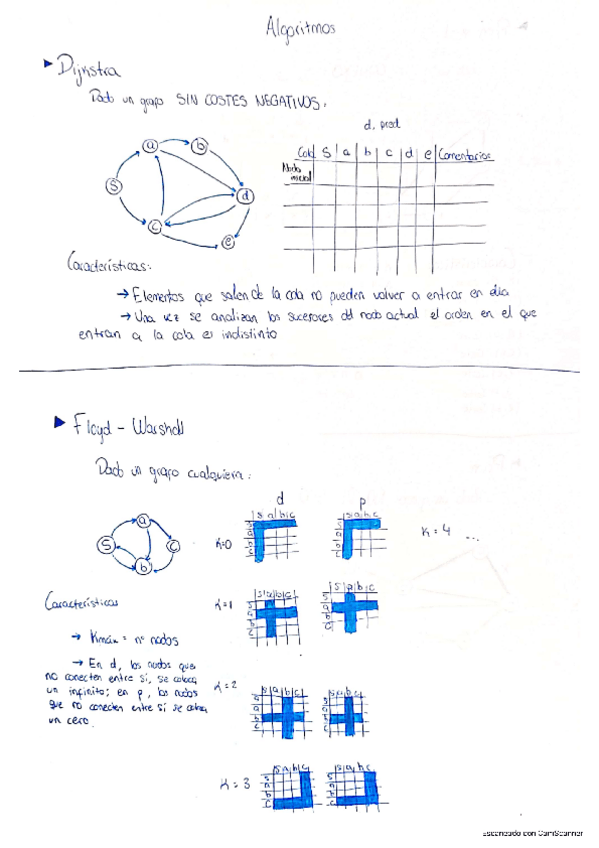 Algoritmos
▶ Dijkstra
Dado un grafo SIN COSTES NEGATIVOS.
d, pred
Cola S a b c d e Comentarios
Nodo
inicial
a b
S d
c
e
Características:
→ Elementos que salen de la cola no pueden volver a entrar en ella
→ Una vez se analizan los sucesores del nodo actual el orden en el que
entran a la cola es indistinto
▶ Floyd - Warshall
Dado un grafo cualquiera:
d p
s a b c s a b c
s s
a a
b b
c c
K=0
K = 4 ...
a
S c
b
Características
→ Kmáx = nº nodos
→ En d, los nodos que
no conecten entre sí, se coloca
un infinito; en p, los nodos
que no conecten entre sí se coloca
un cero.
K=1
s a b c s a b c
s s
a a
b b
c c
K=2
s a b c s a b c
s s
a a
b b
c c
K = 3
s a b c s a b c
s s
a a
b b
c c
Escaneado con CamScanner